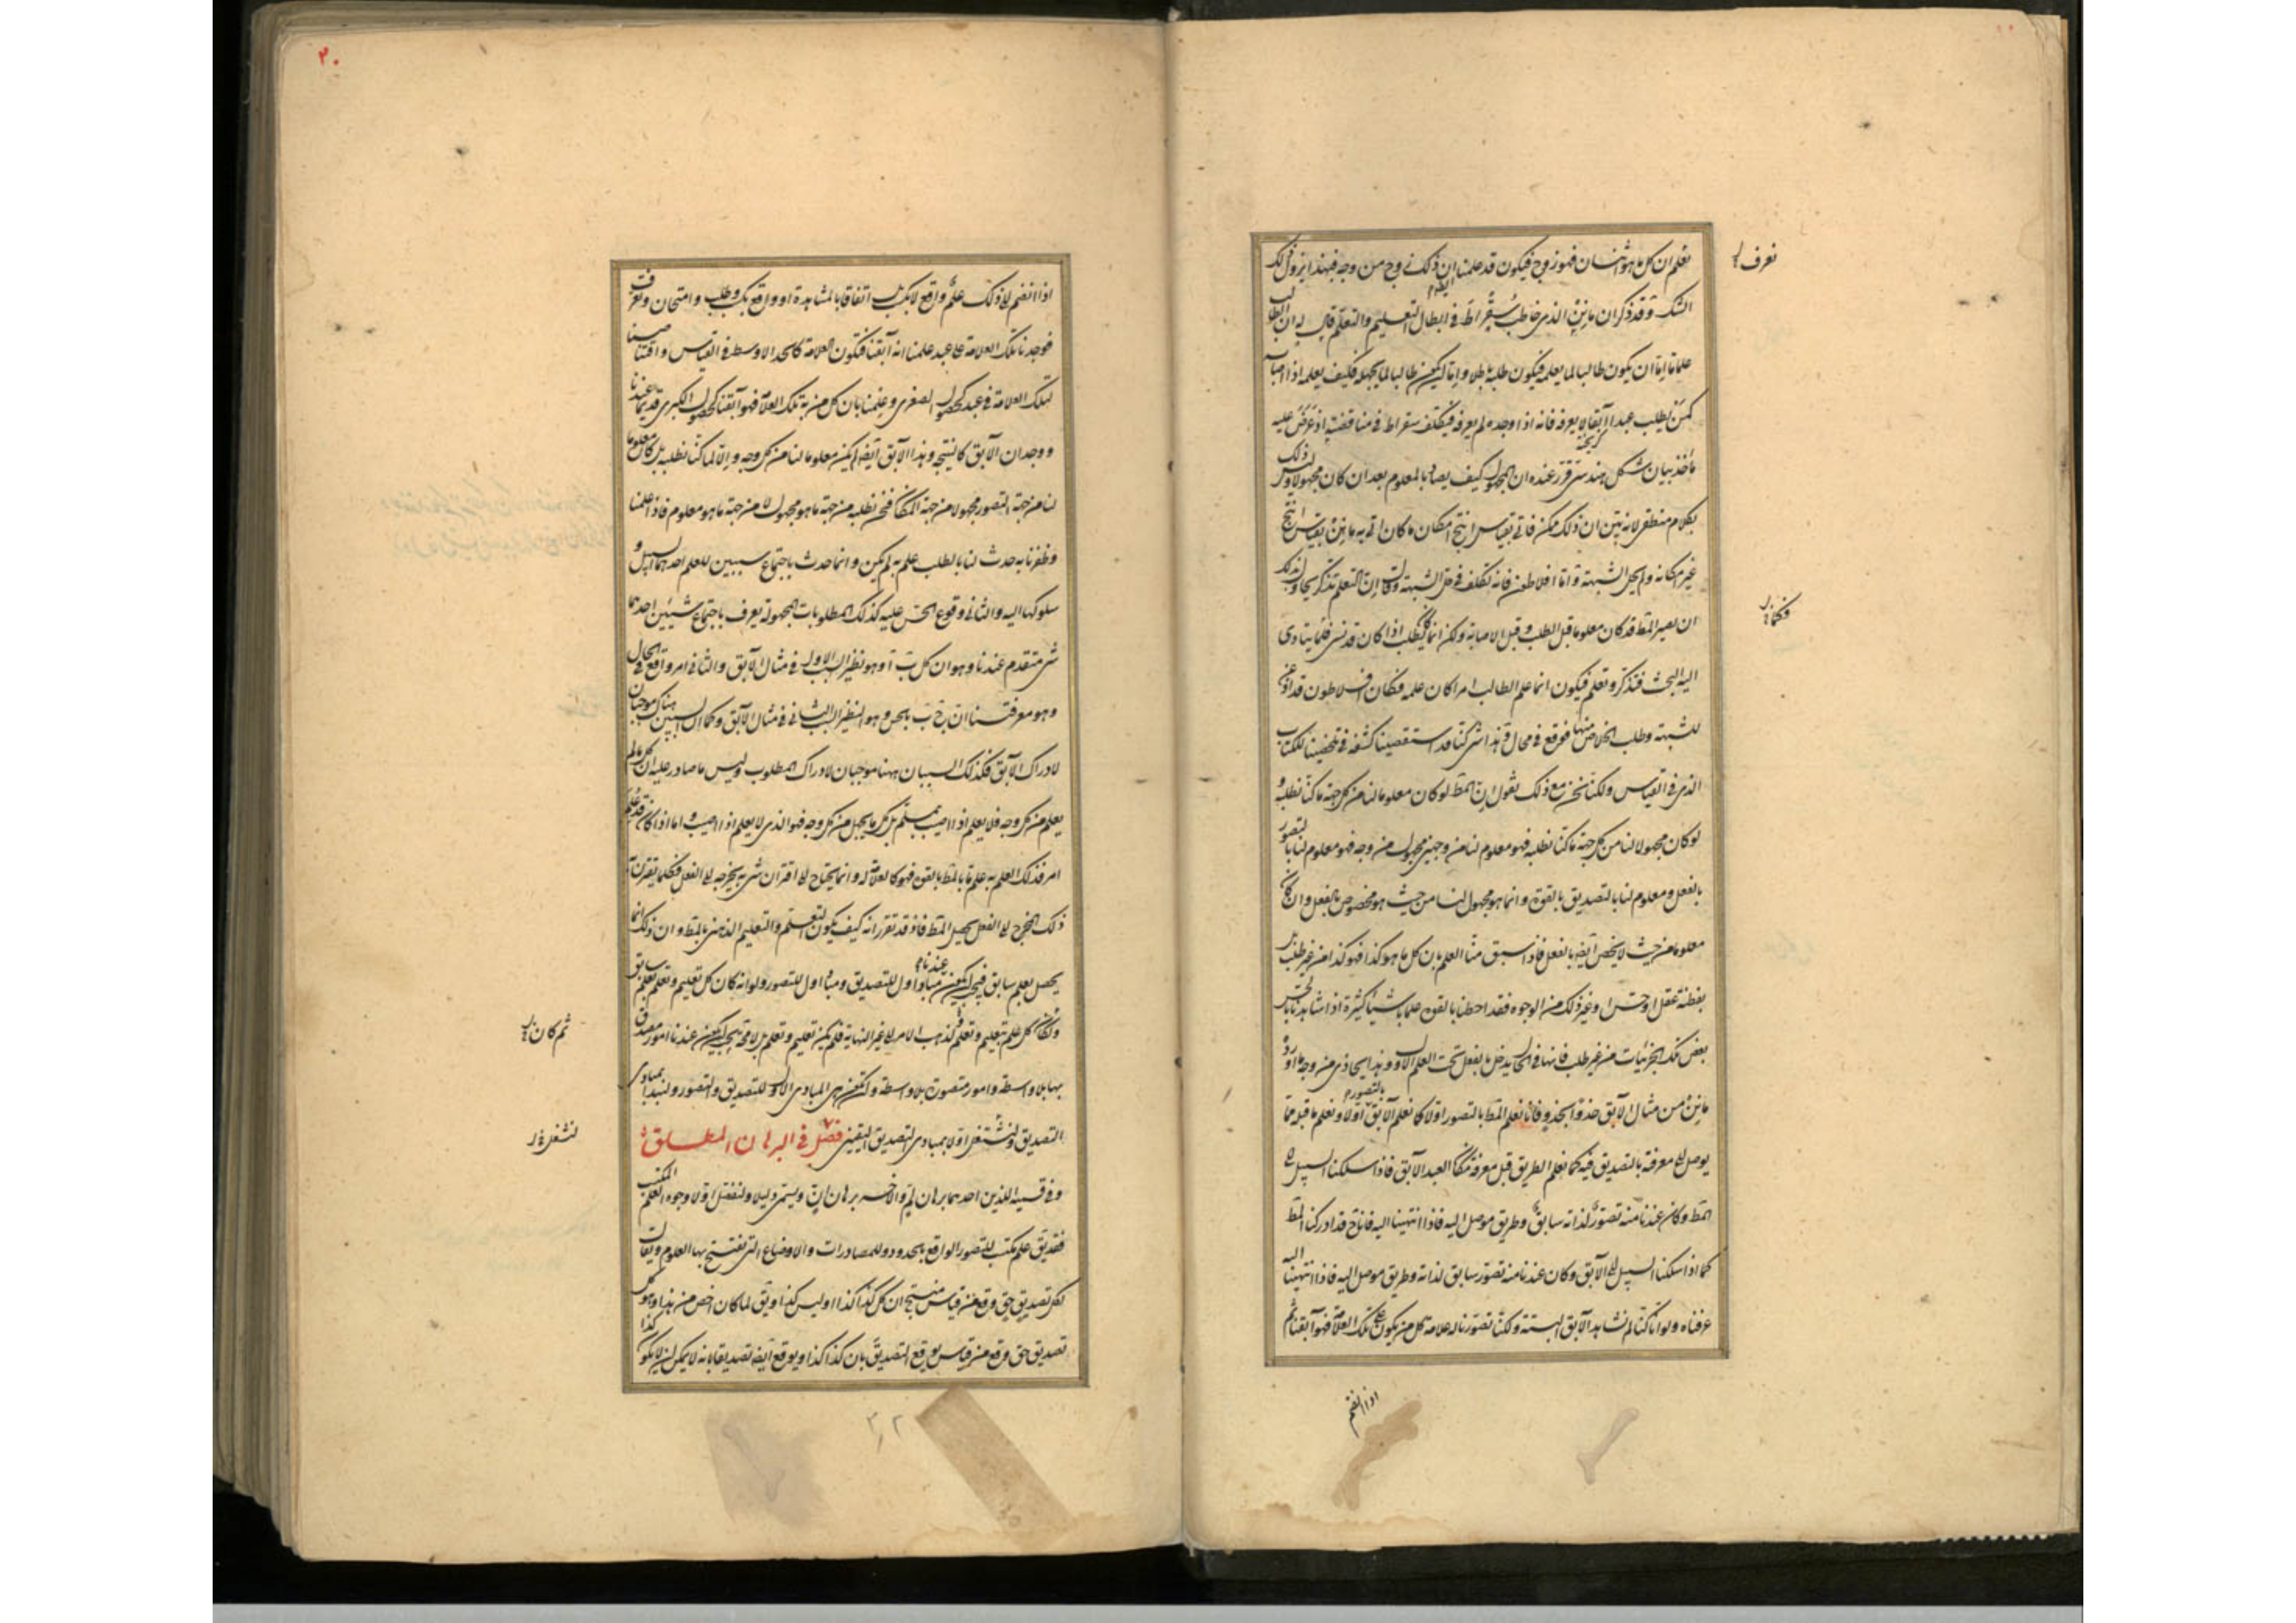 نعلم ان كل ما هو انسان فهو زوج فيكون قد علمنا ان ذلك زوج من وجه فبهذا يزول ذلك
الشك وقد ذكر ان مانن الذي خاطب سقراط في ابطال التعليم والتعلم قال له ان الطالب
علما ما اما ان يكون طالبا لما يعلمه فيكون طلبه باطلا واما ان يكون طالبا لما يجهله فكيف يعلمه اذا اصابه
كمن يطلب عبدا آبقا لا يعرفه فانه اذا وجده لم يعرفه فتكلف سقراط في مناقضته اذ عرض عليه
مأخذ بيان شكل هندسي قرر عنده ان المجهول كيف يصاد بالمعلوم بعد ان كان مجهولا وليس ذلك
بكلام منطقي لانه بين ان ذلك ممكن فاتى بقياس انتج امكان ما كان اتى به مانن بقياس انتج
غير امكانه ولم يحل الشبهة واما افلاطون فانه تكلف في حل الشبهة وقال ان التعلم تذكر يحاول بذلك
ان يصير المط قد كان معلوما قبل الطلب وقبل الاصابة ولكن انما كان يطلب اذا كان قد نسي فلما يتادى
اليه البحث فتذكر وتعلم فيكون انما علم الطالب امرا كان علمه فكان افلاطون قد اذعن
للشبهة وطلب الخلاص منها فوقع في محال وهذا شي كنا قد استقصينا كشفه في تلخيصنا للكتاب
الذي في القياس ولكنا نحن مع ذلك نقول ان المط لو كان معلوما لنا من كل جهة ما كنا نطلبه و
لو كان مجهولا لنا من كل جهة ما كنا نطلبه فهو معلوم لنا من وجهين مجهول من وجه فهو معلوم لنا بالتصور
بالفعل ومعلوم لنا بالتصديق بالقوة وانما هو مجهول لنا من حيث هو مخصوص بالفعل وان كان
معلوما من حيث لا يخص ايضا بالفعل فاذا سبق منا العلم بان كل ما هو كذا فهو كذا من غير طلب بل
بفطنة عقل او حس او غير ذلك من الوجوه فقد احطنا بالقوة علما باشياء كثيرة اذا شاهدنا بالحس
بعض تلك الجزئيات من غير طلب فانها في الحال يدخل بالفعل تحت العلم الاول وهذا يحاذي من وجه ما اورده
مانن من مثال الآبق حذوا بحذو فانا نعلم المط بالتصور اولا كما نعلم الآبق بالتصور اولا ونعلم ما قبله مما
يوصل الى معرفة بالتصديق فيه كما نعلم الطريق قبل معرفة مكان العبد الآبق فاذا سلكنا السبيل الى
المط وكان عندنا منه تصور لذاته سابق وطريق موصل اليه فاذا انتهينا اليه فانا ح قد ادركنا المط
كما اذا سلكنا السبيل الى الآبق وكان عندنا منه تصور سابق لذاته وطريق موصل اليه فاذا انتهينا اليه
عرفناه ولو انا كنا لم نشاهد الآبق البتة ولكنا تصورنا له علامة كل من يكون على تلك العلامة فهو آبقنا ثم
نعرف
فكلما
اذا انضم
٢٠
اذا انضم الى ذلك علم واقع لا بكسب بل اتفاقا بالمشاهدة او واقع بكسب وطلب وامتحان وتعرف
فوجدنا تلك العلامة على عبد علمنا انه آبقنا فتكون العلامة كالحد الاوسط في القياس واقتناصنا
لتلك العلامة في عبد كحصول الصغرى وعلمنا بان كل من به تلك العلامة فهو آبقنا كحصول الكبرى قديما عندنا
ووجدان الآبق كالنتيجة وهذا الآبق ايضا لم يكن معلوما لنا من كل وجه والا لما كنا نطلبه بل كان معلوما
لنا من جهة التصور مجهولا من جهة المكان فنحن نطلبه من جهة ما هو مجهول لا من جهة ما هو معلوم فاذا علمنا
وظفرنا به حدث لنا بالطلب علم به لم يكن وانما حدث باجتماع سببين للعلم احدهما السبيل و
سلوكها اليه والثاني وقوع الحس عليه كذلك المطلوبات المجهولة يعرف باجتماع شيئين احدهما
شي متقدم عندنا وهو ان كل ب ا وهو نظير السبب الاول في مثال الآبق والثاني امر واقع في الحال
وهو معرفتنا ان ج ب بالحس وهو النظير السبب الثاني في مثال الآبق وكما ان السببين هناك موجبان
لادراك الآبق فكذلك السببان ههنا موجبان لادراك المطلوب وليس ما صادر عليه ان كل ما لم
يعلم من كل وجه فلا يعلم اذا اصيب بمسلم بل كل ما يجهل من كل وجه فهو الذي لا يعلم اذا اصيب واما اذا كان قد علم
امر فذلك العلم به علم ما بالمط بالقوة فهو كالعلامة له وانما يحتاج الى اقتران شي به يخرجه الى الفعل فكما يقترن به
ذلك المخرج الى الفعل يحصل المط فاذ قد تقرر انه كيف يكون التعلم والتعليم الذهني بالمط وان ذلك انما
يحصل بعلم سابق فيجب ان يكون عندنا مباد اول للتصديق ومباد اول للتصور ولو انه كان كل تعليم وتعلم بعلم سابق
وكان كل علم بتعليم وتعلم لذهب الامر الى غير النهاية فلم يكن تعليم وتعلم بل لا محة يجب ان يكون عندنا امور مصدق
بها بلا واسطة وامور متصورة بلا واسطة ولتكن هي المبادي الاولى للتصديق والتصور ولنبدأ بمبادي
التصديق ولنشتغل اولا بمبادي التصديق اليقيني فصل في البرهان المطلق
وفي قسميه اللذين احدهما برهان لم والآخر برهان ان ويسمى دليلا ولنفصل اولا وجوه العلم المكتسب
فقد يق علم مكتسب للتصور الواقع بالحدود وللمصادرات والاوضاع التي تفتتح بها العلوم ويقال
لكل تصديق حق وقع من قياس منتج ان كل كذا كذا او ليس كذا ويق لما كان اخص من هذا وهو كل
تصديق حق وقع من قياس يوقع التصديق بان كذا كذا ويوقع ايضا تصديقا بانه لا يمكن ان لا يكون كذا
ثم كان
لنشغل